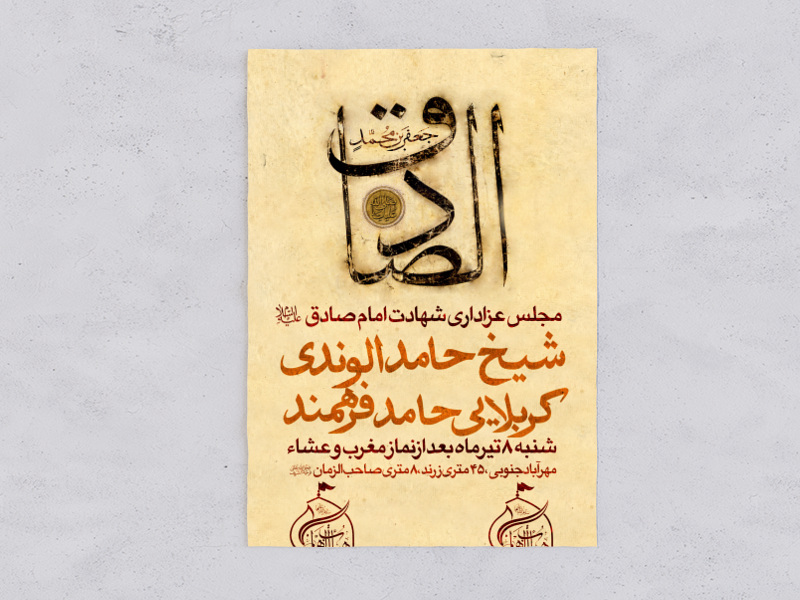 الصادق
جعفر بن محمد
مجلس عزاداری شهادت امام صادق علیه السلام
شیخ حامد الوندی
کربلایی حامد فرهمند
شنبه ۸ تیر ماه بعد از نماز مغرب و عشاء
مهرآباد جنوبی، ۴۵ متری زرند، ۸ متری صاحب الزمان